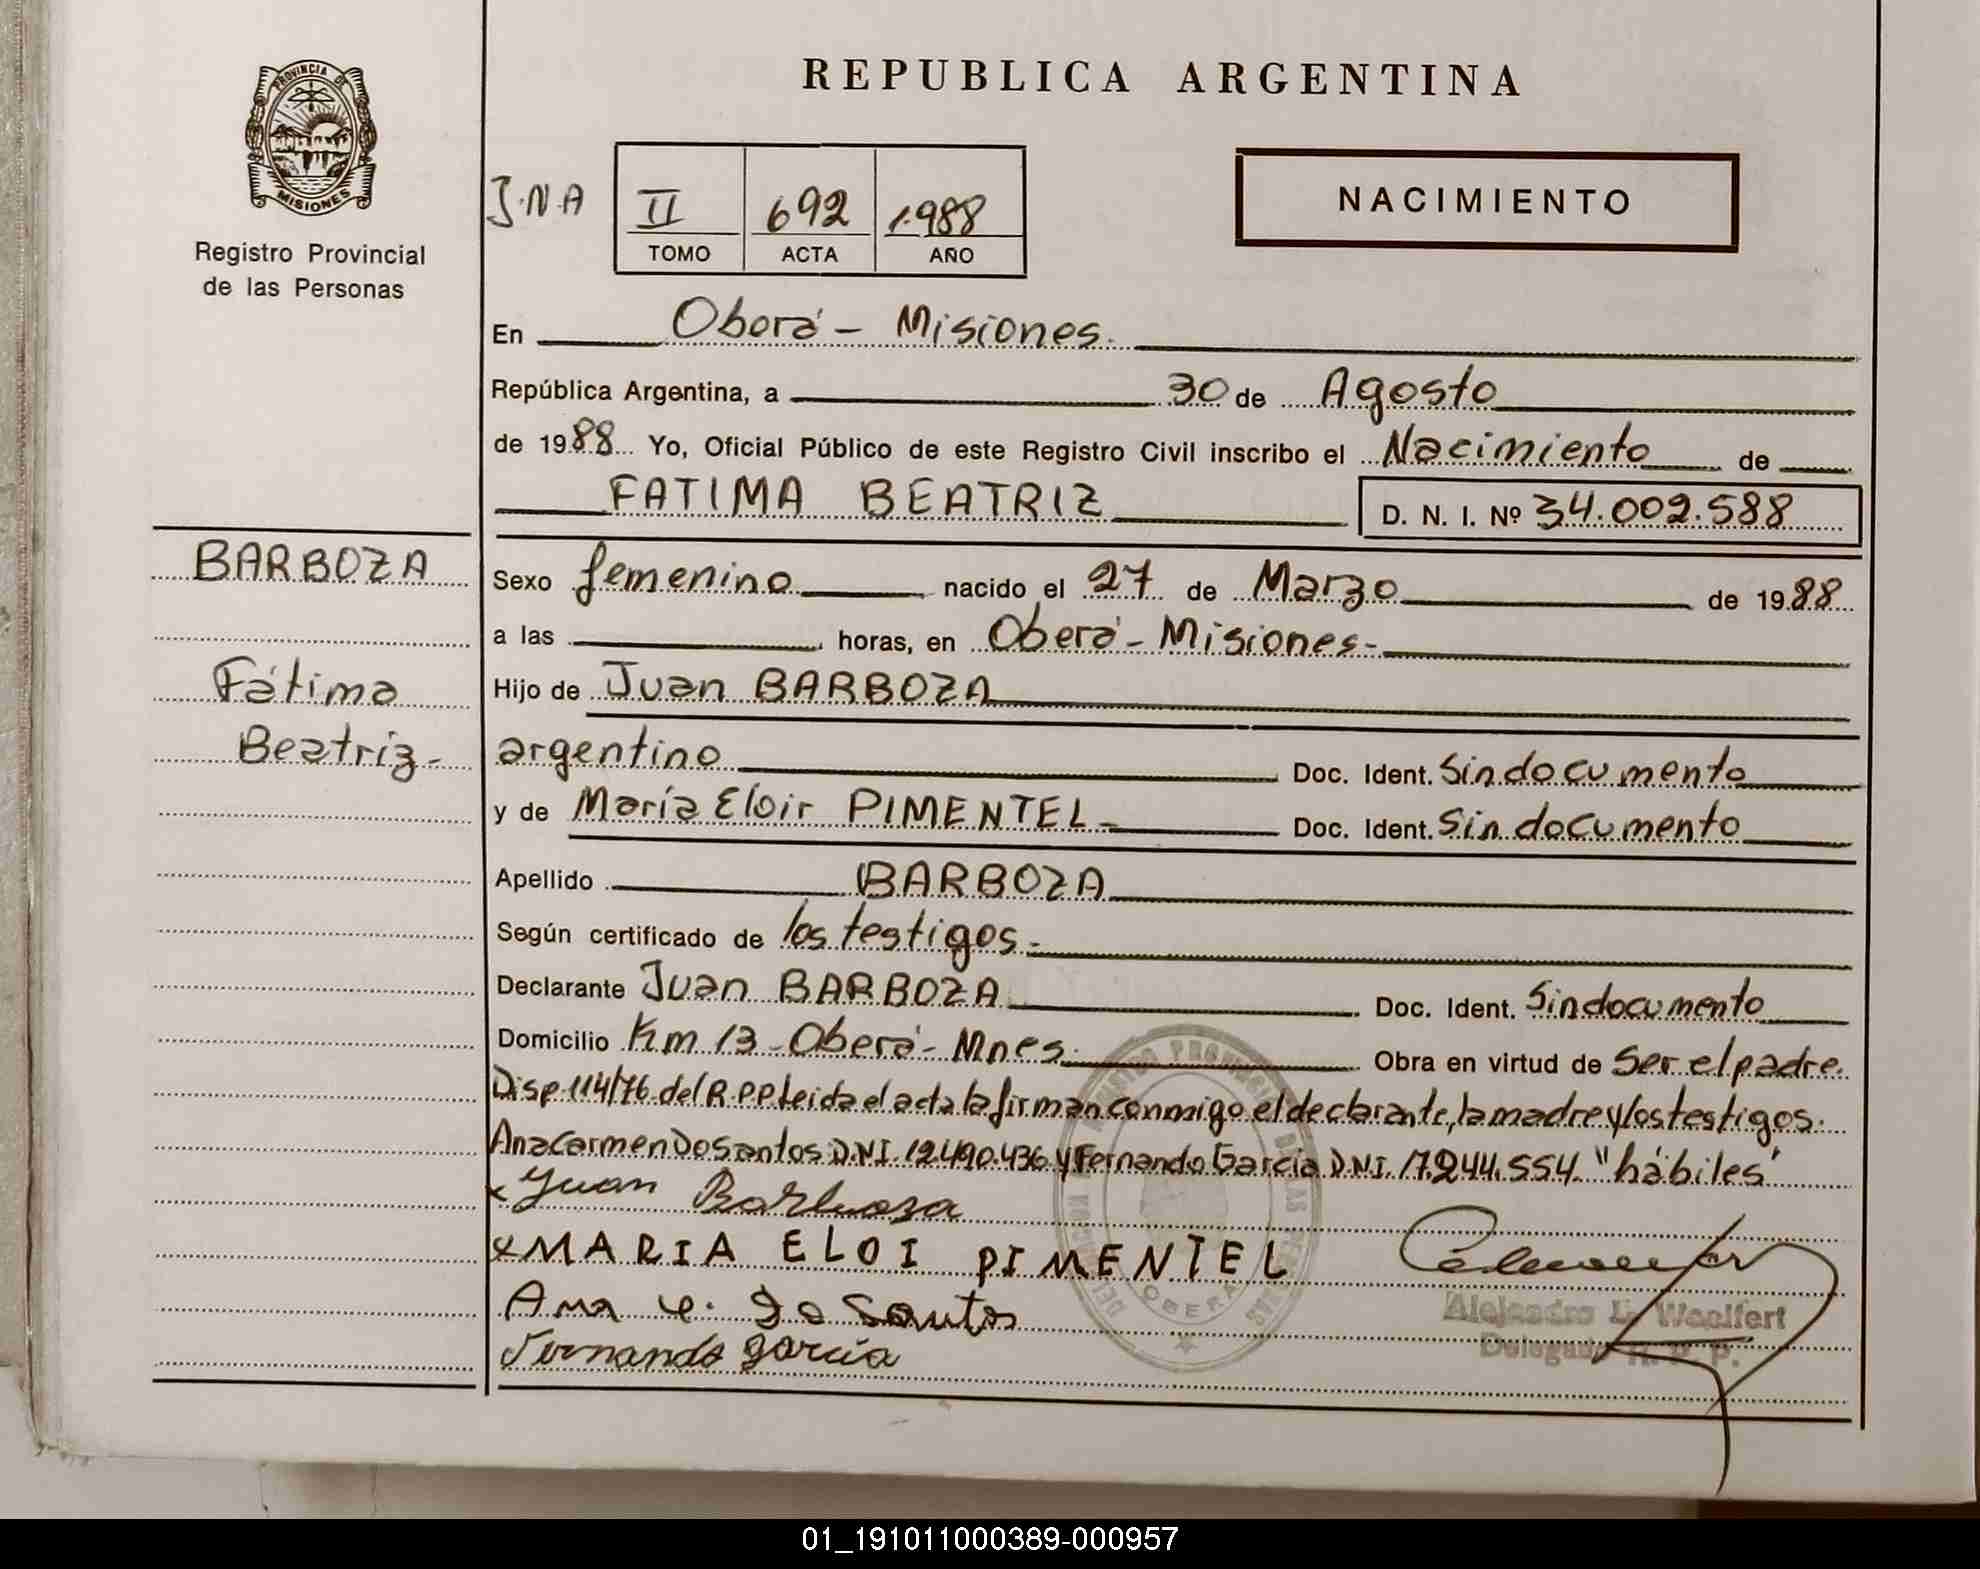 REPUBLICA ARGENTINA
PROVINCIA DE
MISIONES
Registro Provincial
de las Personas
J.N.A
II 692 1.988
TOMO ACTA AÑO
NACIMIENTO
En Oberá - Misiones.
República Argentina, a 30 de Agosto
de 1988 Yo, Oficial Público de este Registro Civil inscribo el Nacimiento de
FATIMA BEATRIZ D. N. I. Nº 34.002.588
BARBOZA
Fátima
Beatriz-
Sexo femenino nacido el 27 de Marzo de 1988
a las horas, en Oberá - Misiones-
Hijo de Juan BARBOZA
argentino Doc. Ident. Sin documento
y de María Eloir PIMENTEL- Doc. Ident. Sin documento
Apellido BARBOZA
Según certificado de los testigos-
Declarante Juan BARBOZA Doc. Ident. Sin documento
Domicilio Km 13 - Oberá - Mnes. Obra en virtud de Ser el padre.
Disp. 114/76 del R.P.P Leida el acta la firman conmigo el declarante, la madre y los testigos.
Ana Carmen Do Santos D.N.I. 12.490.436 y Fernando García D.N.I. 17.244.554. "hábiles"
x Juan Barboza
x MARIA ELOI PIMENTEL
Ana C. Do Santos
Fernando García
OBERA
Alejandro L. Woelfert
Delegado R. P. P.
01_191011000389-000957